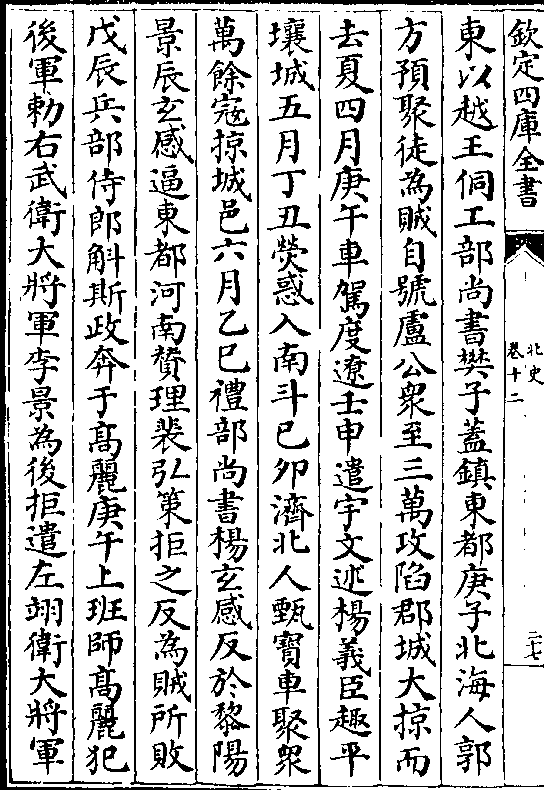 欽定四庫全書
北史
卷十二
二十七
東以越王侗工部尚書樊子蓋鎮東都庚子北海人郭
方預聚徒為賊自號盧公衆至三萬攻陷郡城大掠而
去夏四月庚午車駕度遼壬申遣宇文述楊義臣趣平
壤城五月丁丑熒惑入南斗己卯濟北人甄寶車聚衆
萬餘寇掠城邑六月乙巳禮部尚書楊玄感反於黎陽
景辰玄感逼東都河南贊理裴弘策拒之反為賊所敗
戊辰兵部侍郎斛斯政奔于髙麗庚午上班師髙麗犯
後軍勅右武衛大將軍李景為後拒遣左翊衛大將軍